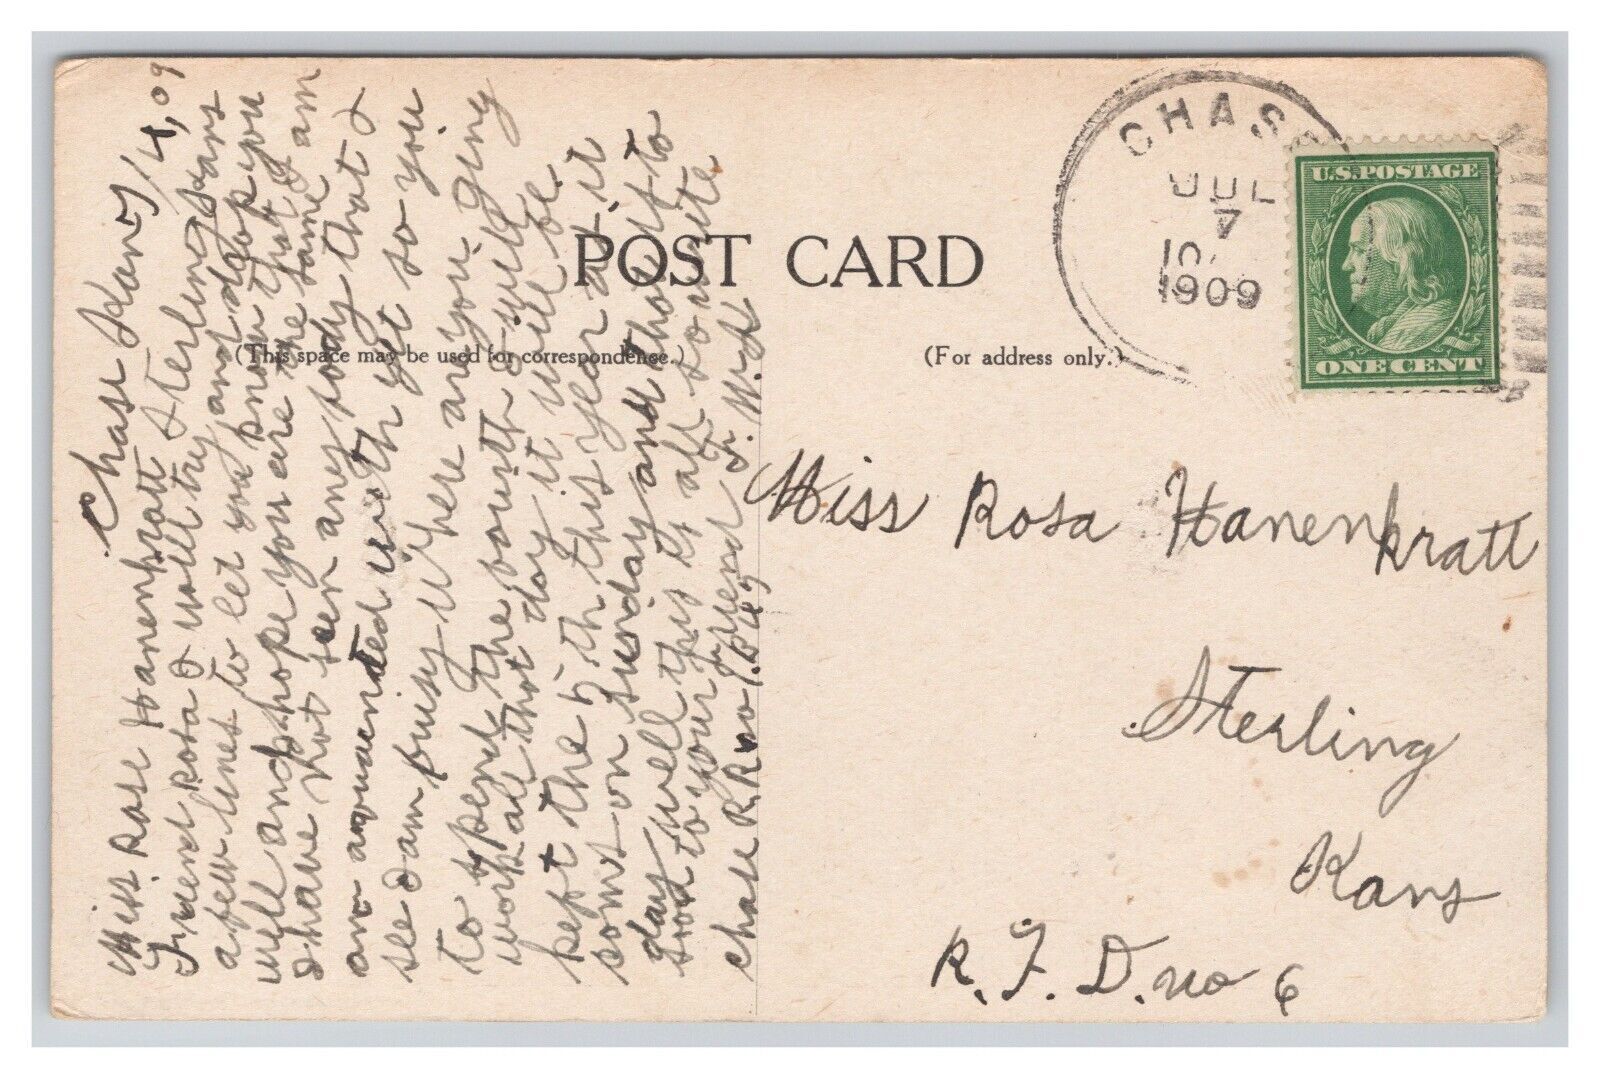 Chase Kans 7/4, 09
Miss. Rose Hanenkratt Sterling Kans
Friend Rosa I will try and drop you
a few lines to let you know that I am
well and hope you are the same I
I have not seen any body that I
am aquaented with yet so you
see I am busy Where are you going
to spent the fourth I will
work all that day it will be
kept the 5 th this year as it
coms on Sunday and
day well this is all so write
soon to your friend J. W. H
Chase R.R. no 1. B
POST CARD
(This space may be used for correspondence.)
(For address only.)
CHASE
JUL
7
10
1909
U.S. POSTAGE
ONE CENT
Miss Rosa Hanenkratt
Sterling
Kans
R. F. D. no 6